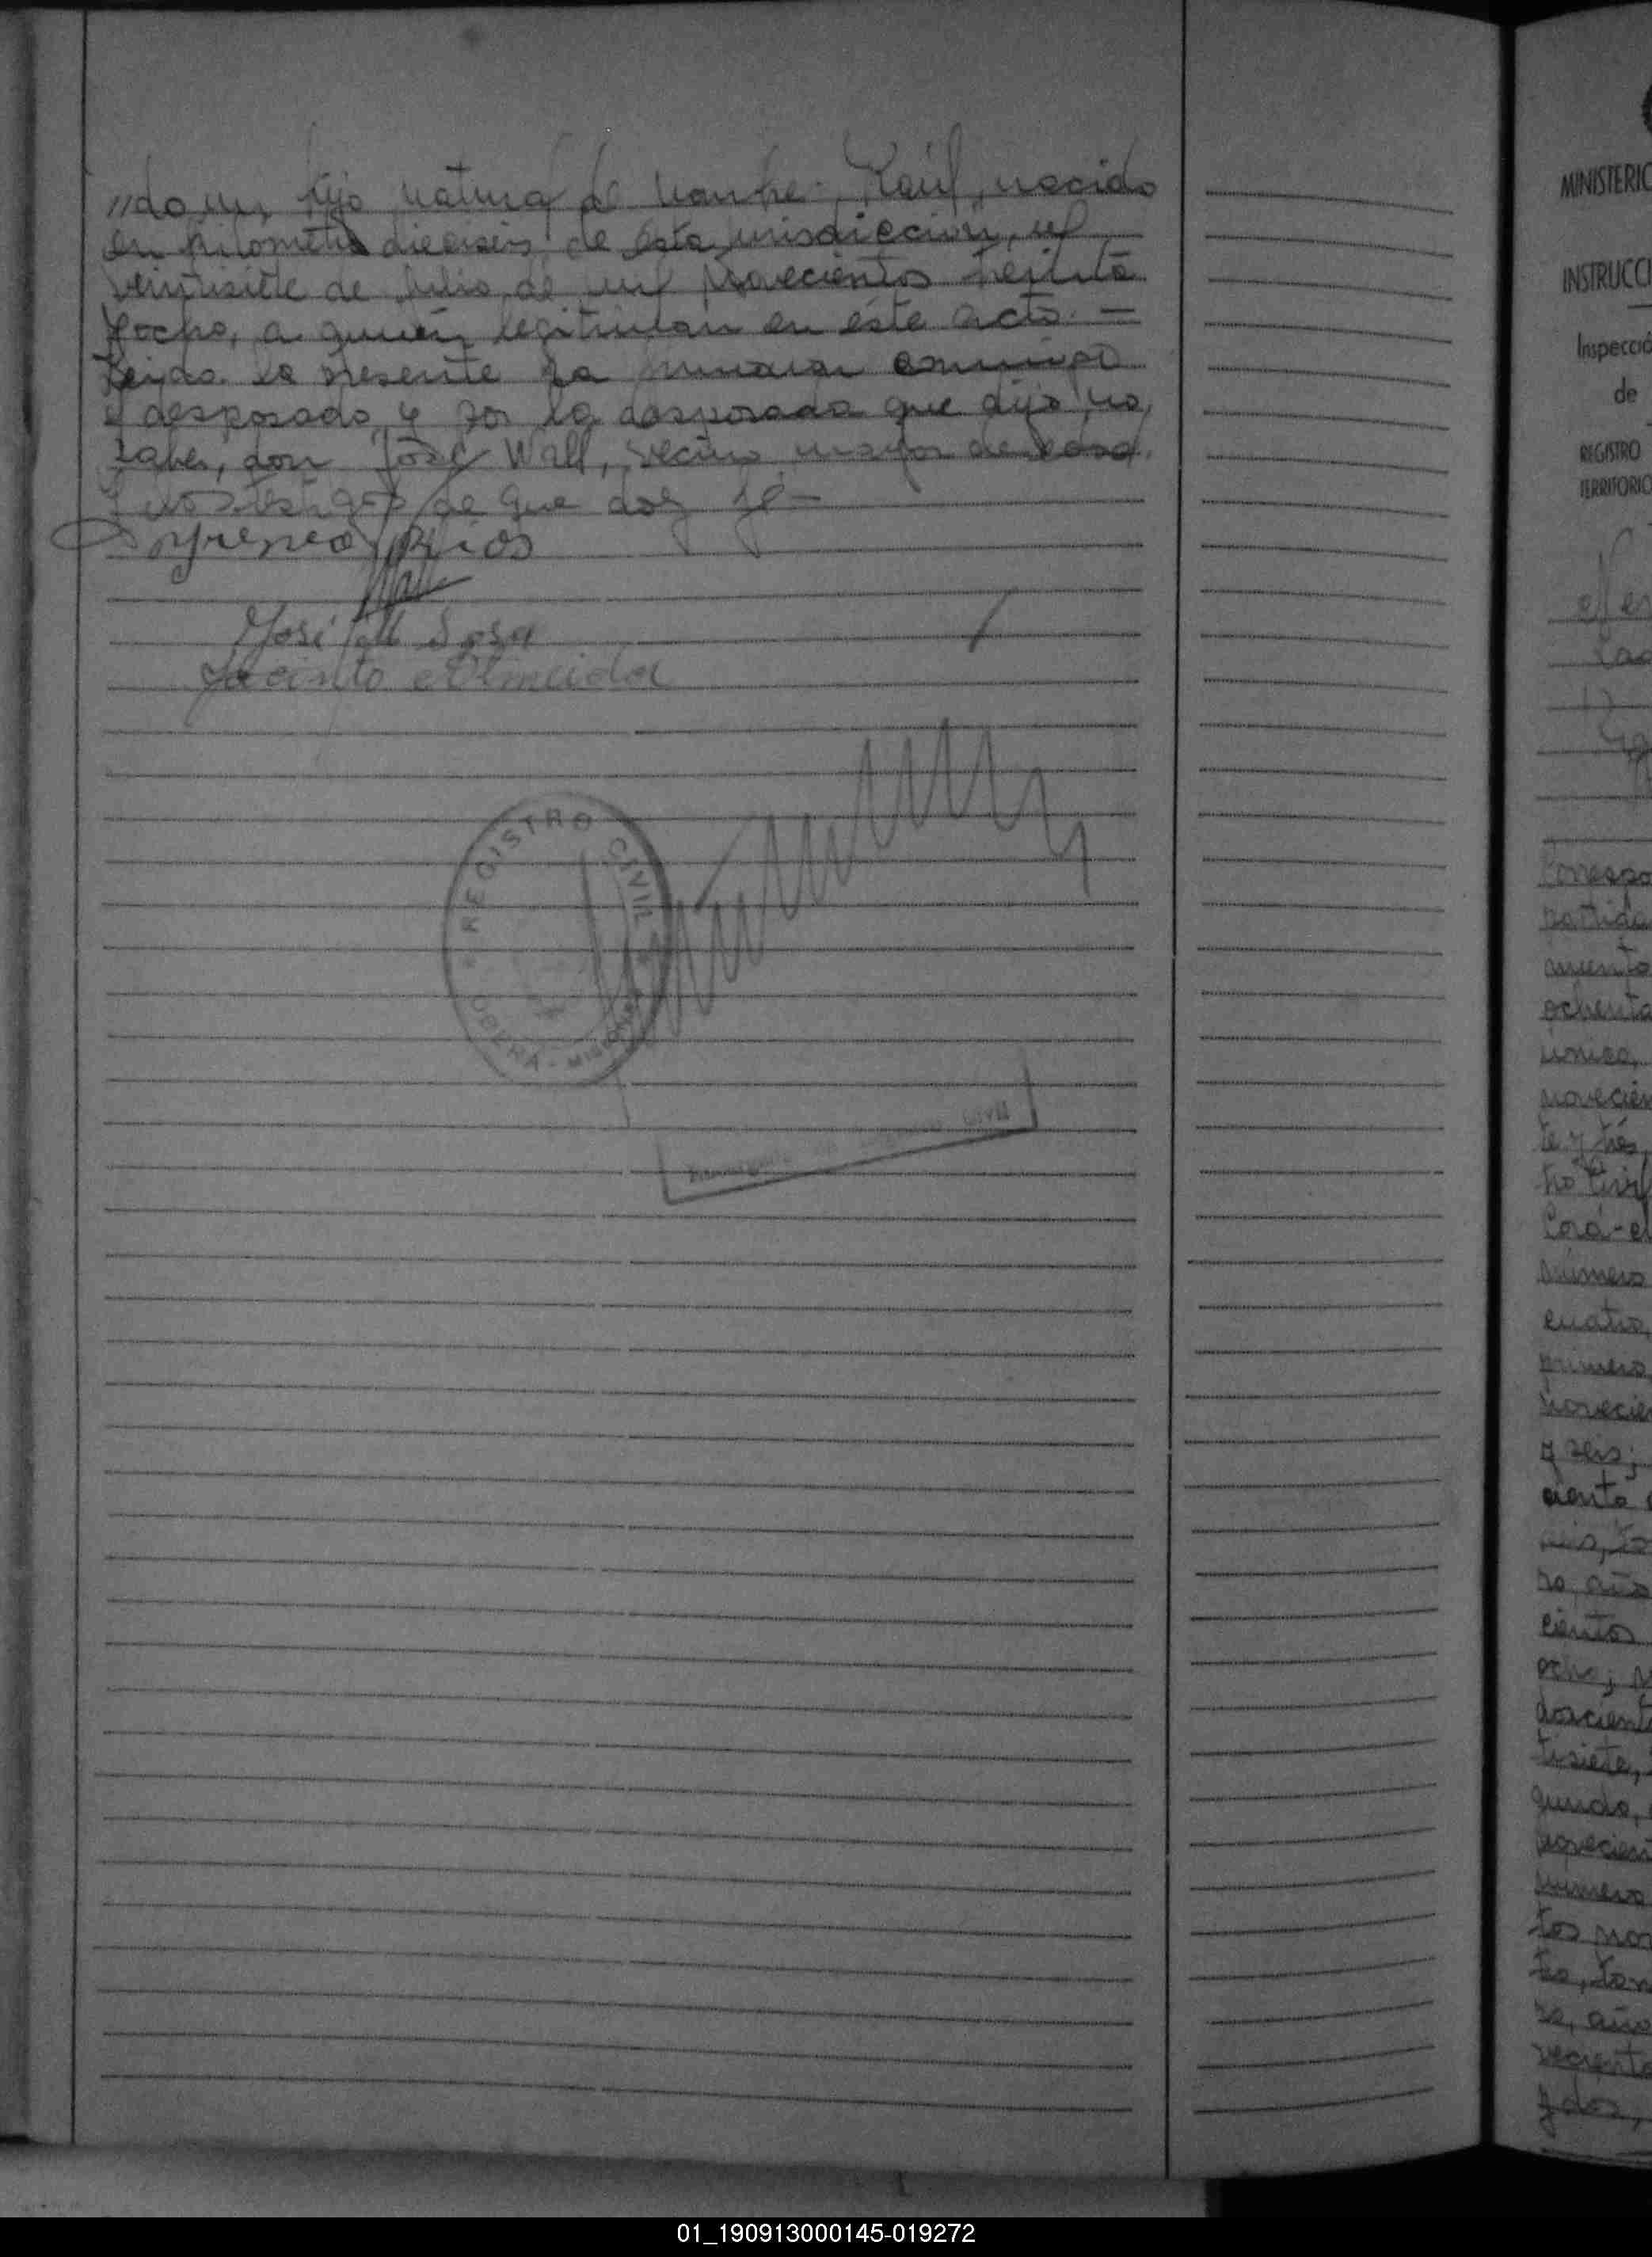 //do un hijo natural de nombre: Raúl, nacido
en kilómetro dieciseis de esta jurisdicción, el
veintisiete de Julio de mil novecientos treinta
y ocho, a quien legitiman en éste acto. =
Leida la presente la firmaran conmigo
el desposado y por la desposada que dijo no
saber, don José Wall, vecino mayor de edad
y los testigos de que doy fé-
Ríos
José M Sosa
Jacinto Almeida
REGISTRO CIVIL
OBERA - MISIONES
CIVIL
MINISTERIO
INSTRUCCI
Inspecció
de
REGISTRO
TERRITORIO
Correspo
partida
amento
ochenta
novecien
te y trés,
tro Civil
Corá-el
número
cuatro,
primero,
novecien
y seis;
ciento
ro, año
cientos
ocho;
doscient
tisiete,
gundo,
novecien
número
tos nov
ro, año
y dos,
01_190913000145-019272